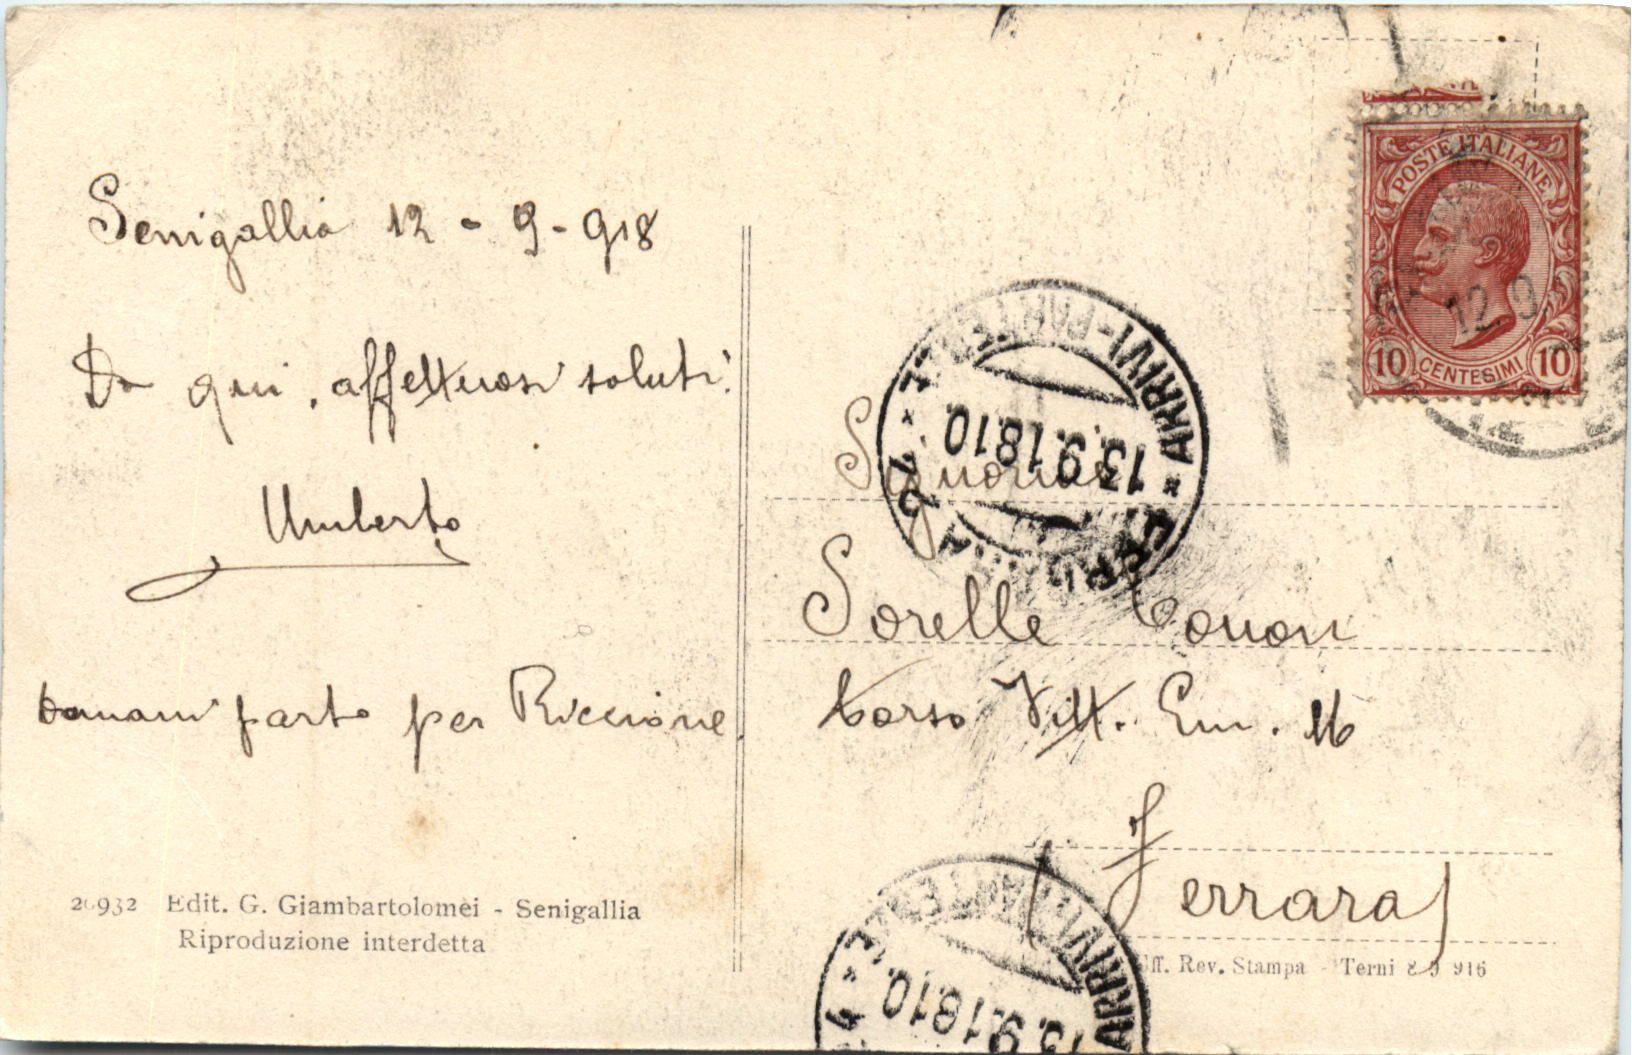 Senigallia 12 - 9 - 918
Da qui, affettuosi saluti.
Umberto
Domani parto per Riccione
20932 Edit. G. Giambartolomei - Senigallia
Riproduzione interdetta
POSTE ITALIANE
12.9.
10 CENTESIMI 10
ARRIVI-PARTENZE
13.9.18.10
FERRARA
Signorine
Sorelle
Corso Vitt. Em. 16
(Ferrara)
Uff. Rev. Stampa - Terni 8 9 916
ARRIVI PARTENZE
13.9.18.10.